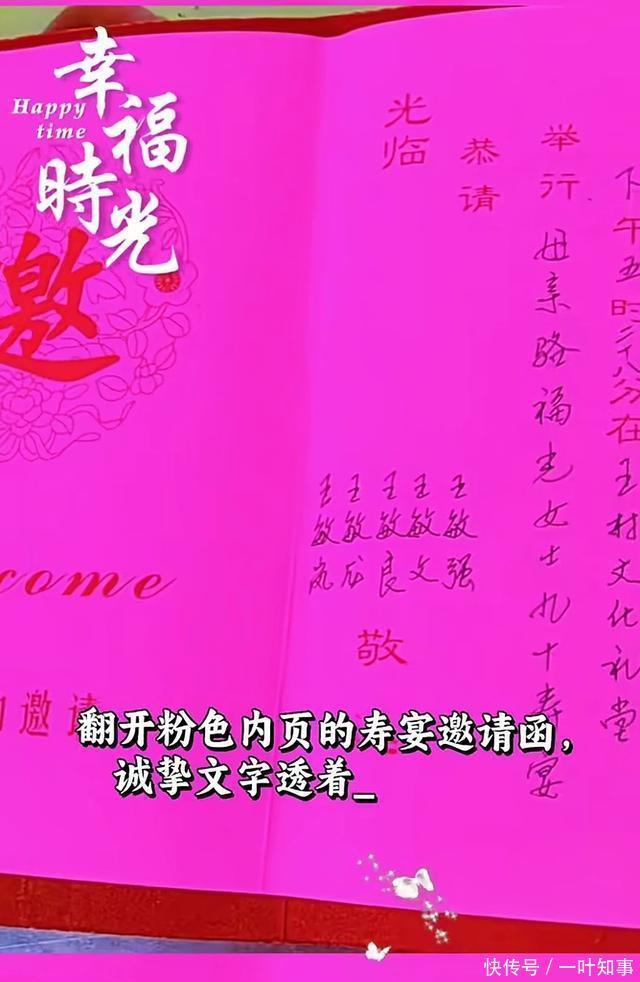 幸福時光
Happy
time
邀
come
邀请
下午五时二十八分在王村文化礼堂
举行 母亲骆福光女士九十寿宴
恭请
光临
王敏强
王敏文
王敏良
王敏龙
王敏岚
敬
翻开粉色内页的寿宴邀请函，
诚挚文字透着_
快传号／一叶知事